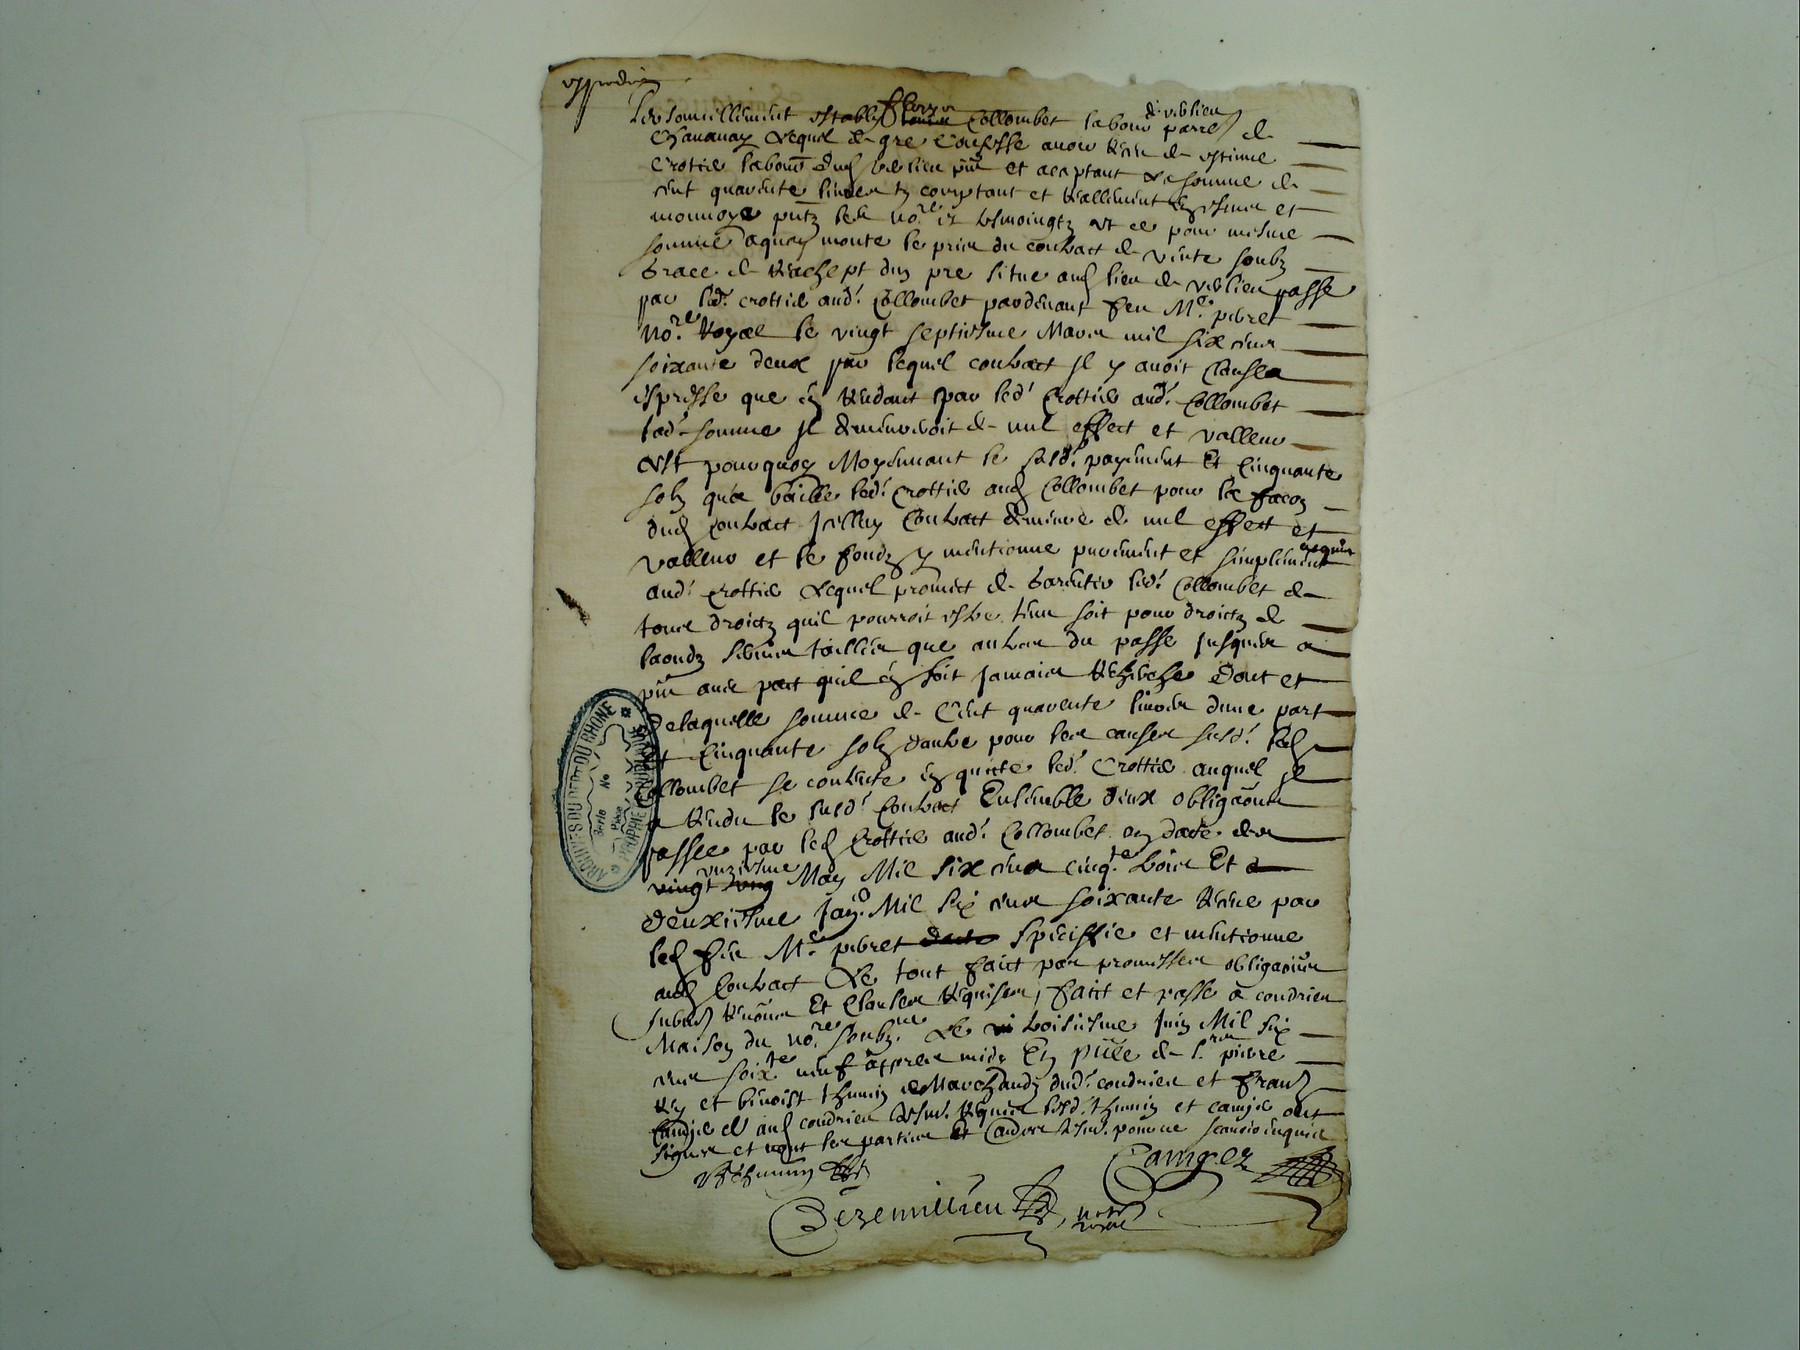 expedie
Personnellement estably Fleury Collombet labour de Verlieu parre de
Chavanay Lequel de gre confesse avoir receu de estienne
Crottier labour dud verlieu pnt et aceptant La somme de
cent quarente livres tz comptant et reallement en escus et
monnoye pntz led no.re et tesmoingtz et ce pour mesme
somme aquoy monte le prix du contract de vente soubz
Grace de Rachept dun pre situe aud lieu de verlieu passe
par led. crottier aud. Collombet pardevant feu Me. pibret
No.re Royal le vingt septiesme Mars mil six cens
soixante deux par lequel contract Il y avoit Clause
expresse que en Rendant par led. Crottier aud. Collombet
lad. somme Il demeureroit de nul effect et valleur
Est pourquoy Moyennant le susd. payement Et Cinquante
solz qua baille led. Crottier aud Collombet pour la facon
dud contract Icelluy Contract demeure de nul effect et
valleur et le fondz y mentionne purement et simplement acquis
aud. Crottier Lequel promet de Garentir led. Collombet de
tous droictz quil pourroit estre tenu soit pour droictz de
laoudz servis tailles que autres du passe Jusques a
pnt avec pact quil en soit Jamais Recherche Dont et
De laquelle somme de Cent quarente livres dune part
et Cinquante solz dautre pour les causes susd. led
Collombet se contente en quitte led. Crottier auquel Il
a Rendu le susd. Contract Ensemble deux obligaons
passee par led Crottier aud. Collombet en date des
vingt unziesme May Mil six cens cinq.te trois Et
deuxiesme Jan. Mil six cens soixante Receue par
led feu Me. pibret speciffie et mentionne
aud Contract Le tout faict par promesses obligaons
submis Renons Et Clauses Requises, faict et passe a condrieu
Maison du no.re soubz.ne Le troisiesme Juin Mil six
cens soix.te neuf appres midy En pnce de s.rs pierre
Rey et benoist thumin Marchandz dud. condrieu et franc
Camyer dud condrieu tesm. Requis lesd. thumin et camyer ont
signes et nont les parties Et lautre tesm. pour ne scavoir enquis
B Thumin
Camyer
Bezennillieu
notre
royal
ARCHIVES DU DEPT DU RHONE